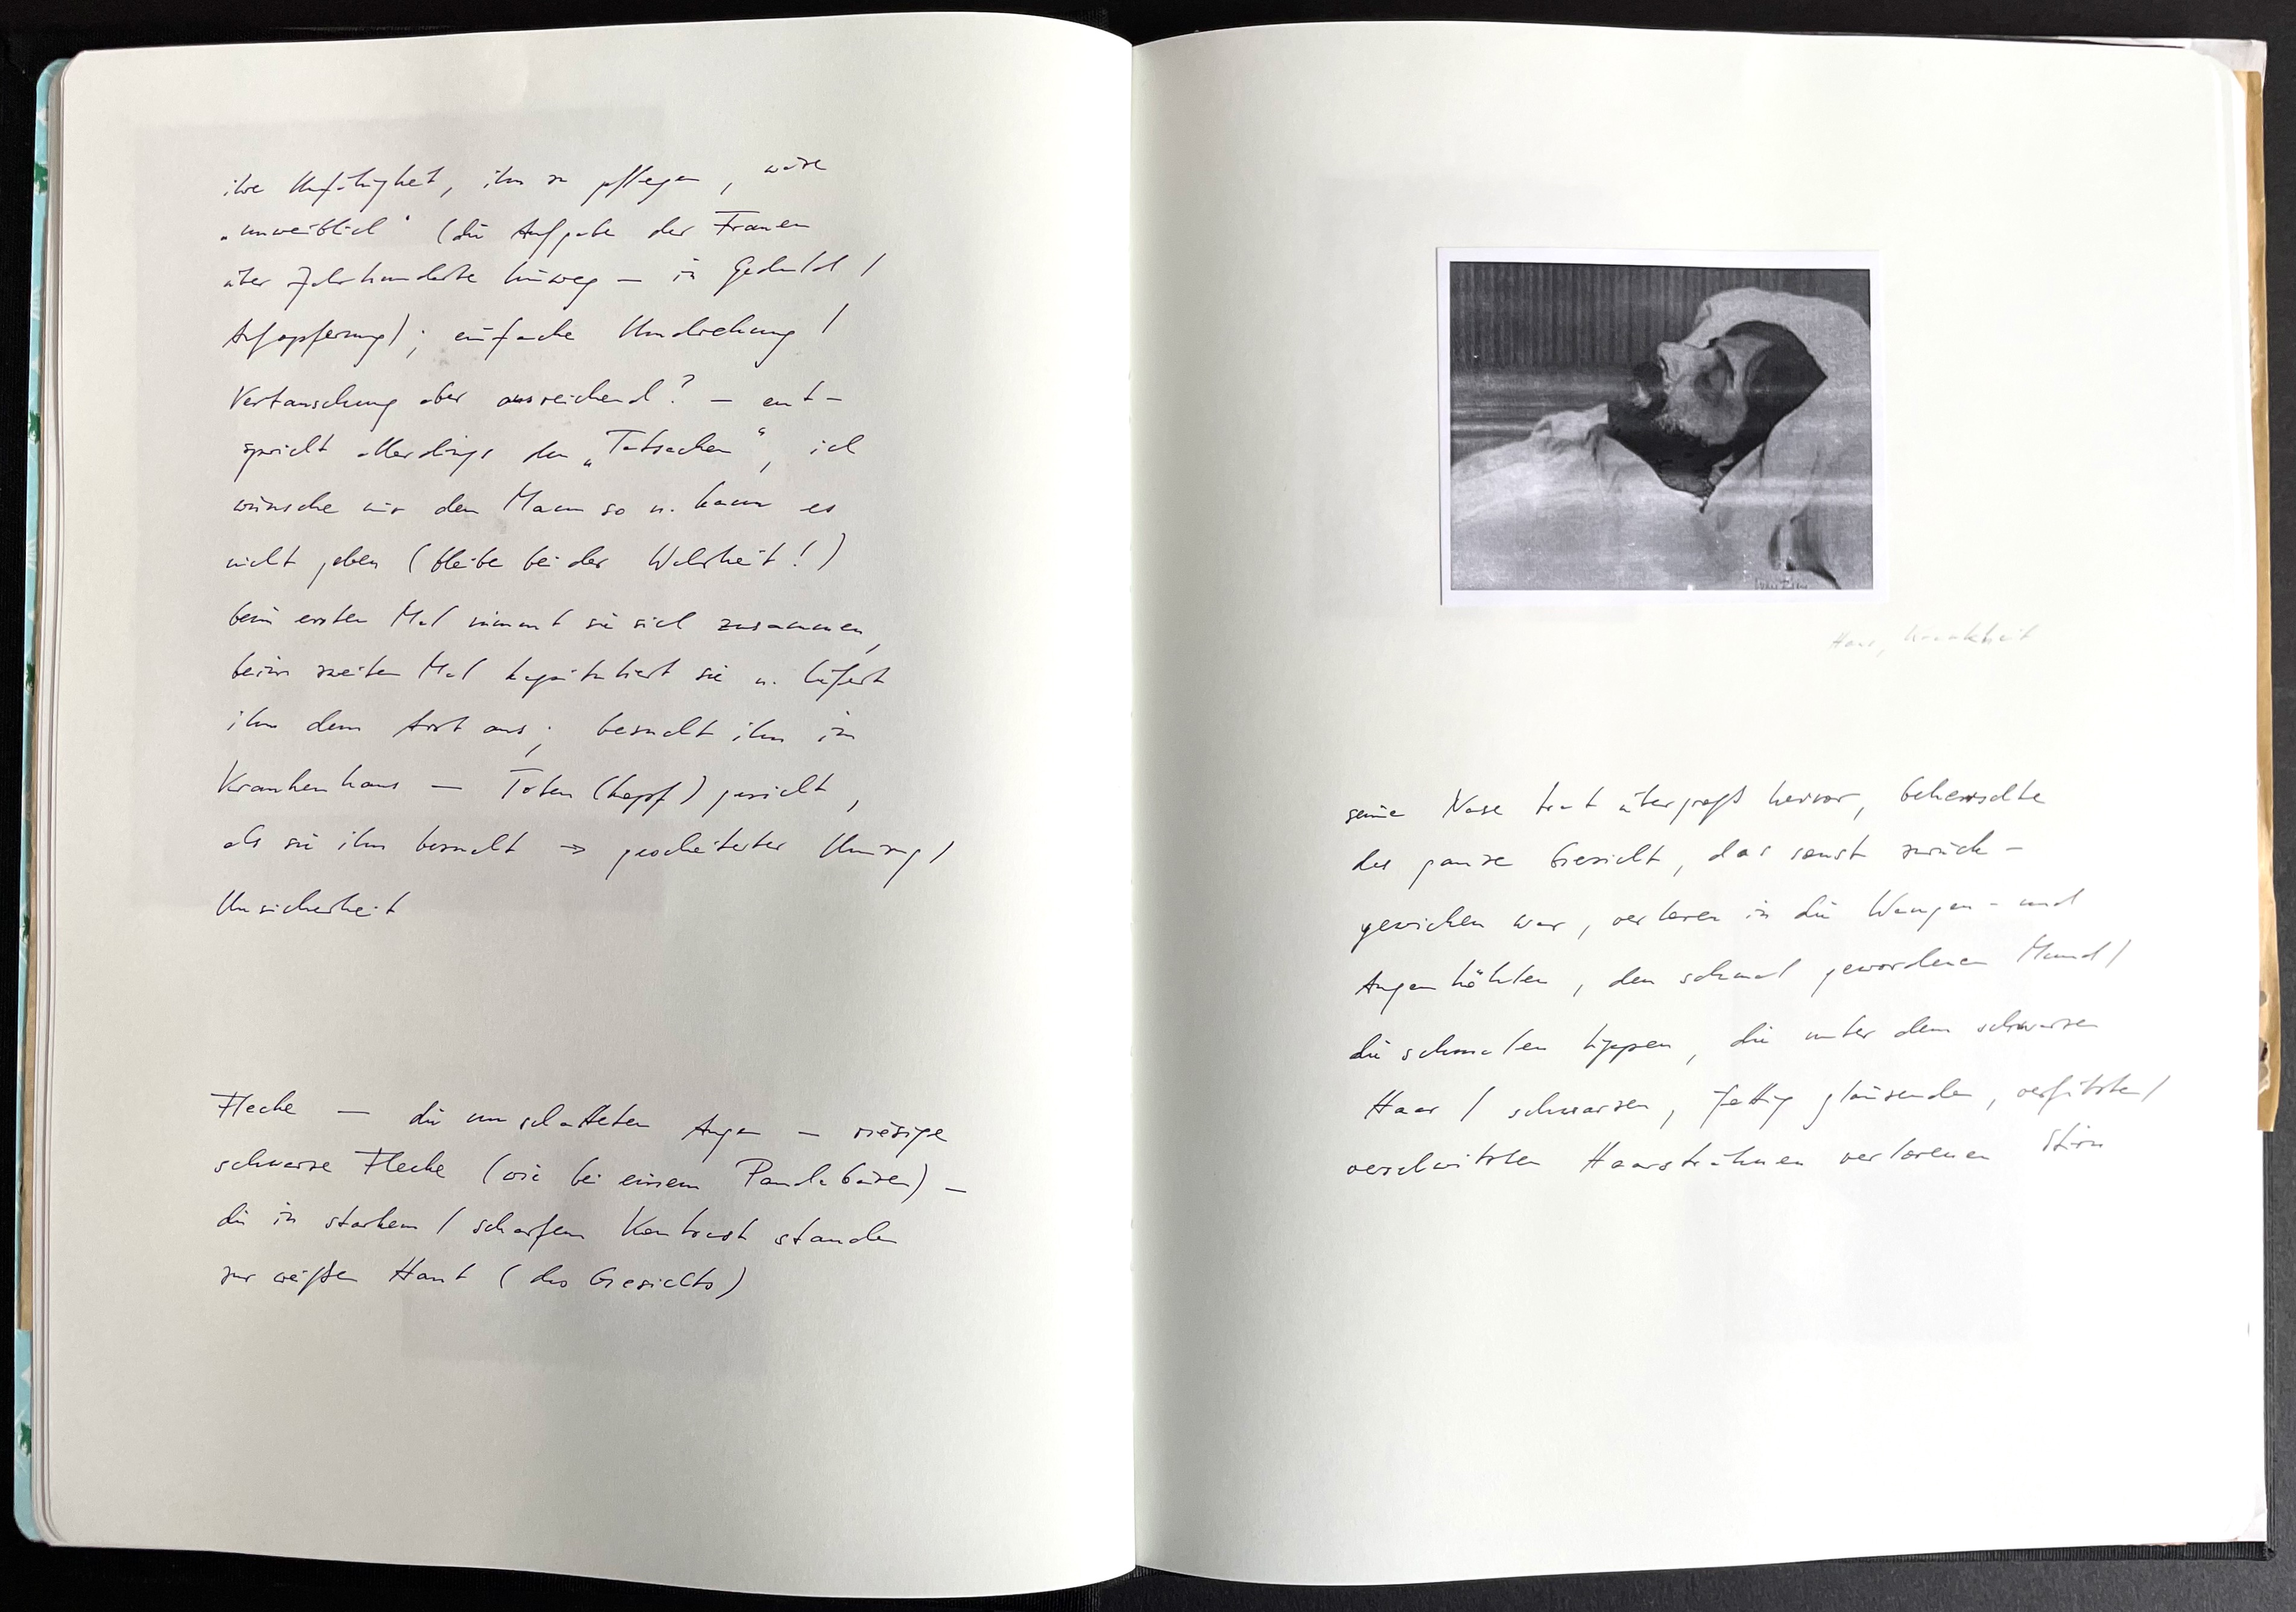 ihre Unfähigkeit, ihn zu pflegen, wäre
„unweiblich“ (die Aufgabe der Frauen
über Jahrhunderte hinweg – in Geduld /
Aufopferung); einfache Umdrehung /
Vertauschung aber ausreichend? – ent-
spricht allerdings den „Tatsachen“, ich
wünsche mir den Mann so u. kann es
nicht geben (bleibe bei der Wahrheit!)
beim ersten Mal nimmt sie sich zusammen,
beim zweiten Mal kapituliert sie u. liefert
ihn dem Arzt aus; besucht ihn im
Krankenhaus – Toten(kopf)gesicht,
als sie ihn besucht → gescheiterter Umzug /
Unsicherheit
Flecke – die umschatteten Augen – riesige
schwarze Flecke (wie bei einem Pandabären) –
die in starkem / scharfem Kontrast standen
zur weißen Haut (des Gesichts)
Haar, Krankheit
seine Nase trat übergroß hervor, beherrschte
das ganze Gesicht, das sonst zurück-
gewichen war, verloren in die Wangen- und
Augenhöhlen, den schmal gewordenen Mund /
die schmalen Lippen, die unter dem schwarzen
Haar / schwarzen, fettig glänzenden, verfilzten /
verschwitzten Haarsträhnen verlorenen Stirn